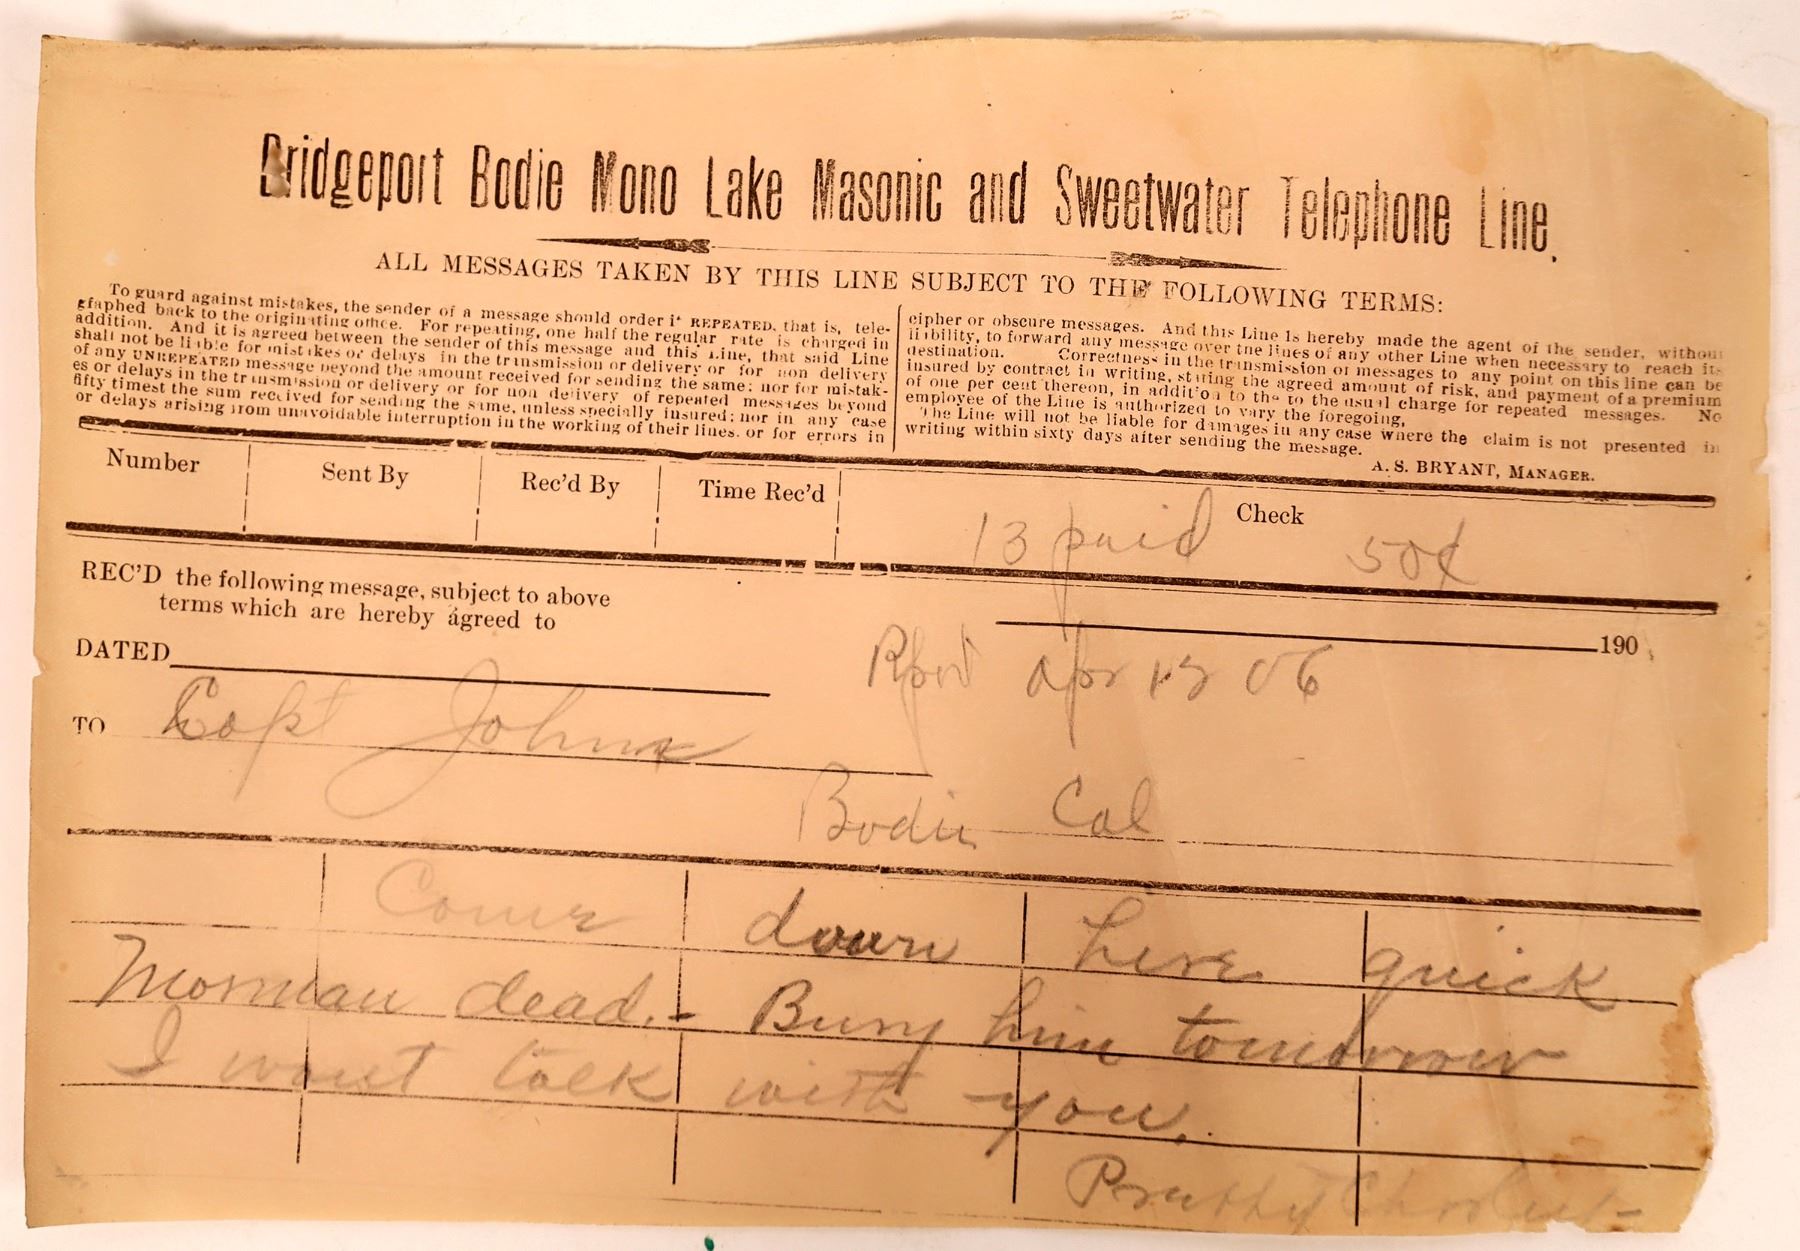 Bridgeport Bodie Mono Lake Masonic and Sweetwater Telephone Line.
ALL MESSAGES TAKEN BY THIS LINE SUBJECT TO THE FOLLOWING TERMS:
To guard against mistakes, the sender of a message should order it REPEATED, that is, tele-
graphed back to the originating office. For repeating, one half the regular rate is charged in
addition. And it is agreed between the sender of this message and this Line, that said Line
shall not be liable for mistakes or delays in the transmission or delivery or for non delivery
of any UNREPEATED message beyond the amount received for sending the same; nor for mistak-
es or delays in the transmission or delivery or for non delivery of repeated messages beyond
fifty timest the sum received for sending the same, unless specially insured; nor in any case
or delays arising from unavoidable interruption in the working of their lines. or for errors in
cipher or obscure messages. And this Line Is hereby made the agent of the sender, without
liability, to forward any message over the lines of any other Line when necessary to reach its
destination. Correctness in the transmission of messages to any point on this line can be
insured by contract in writing, stating the agreed amount of risk, and payment of a premium
of one per cent thereon, in addition to the to the usual charge for repeated messages. No
employee of the Line is authorized to vary the foregoing,
The Line will not be liable for damages in any case where the claim is not presented in
writing within sixty days after sending the message.
A. S. BRYANT, MANAGER.
Number Sent By Rec'd By Time Rec'd Check
13 paid 50¢
REC'D the following message, subject to above
terms which are hereby agreed to
190
DATED
Apr 06
TO Capt John
Bodie Cal
Come down here quick
Morman dead. - Bury him tomorrow
I want talk with you.